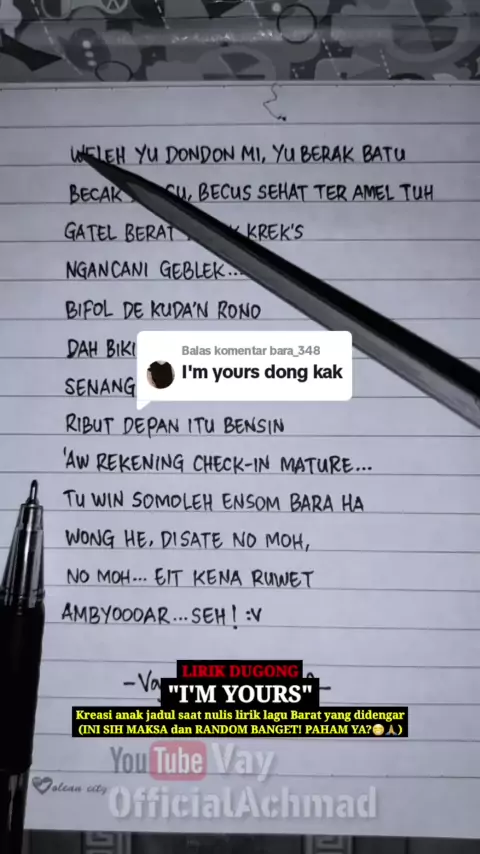 WELEH YU DONDON MI, YU BERAK BATU
BECAK SU, BECUS SEHAT TER AMEL TUH
GATEL BERAT KREK'S
NGANCANI GEBLEK...
BIFOL DE KUDA'N RONO
DAH BIKI
Balas komentar bara_348
I'm yours dong kak
SENANG
RIBUT DEPAN ITU BENSIN
'AW REKENING CHECK-IN MATURE...
TU WIN SOMOLEH ENSOM BARA HA
WONG HE, DISATE NO MOH,
NO MOH... EIT KENA RUWET
AMBYOOOAR...SEH! :V
LIRIK DUGONG
"I'M YOURS"
Kreasi anak jadul saat nulis lirik lagu Barat yang didengar
(INI SIH MAKSA dan RANDOM BANGET! PAHAM YA?😁🙏)
YouTube Vay
OfficialAchmad
olean city